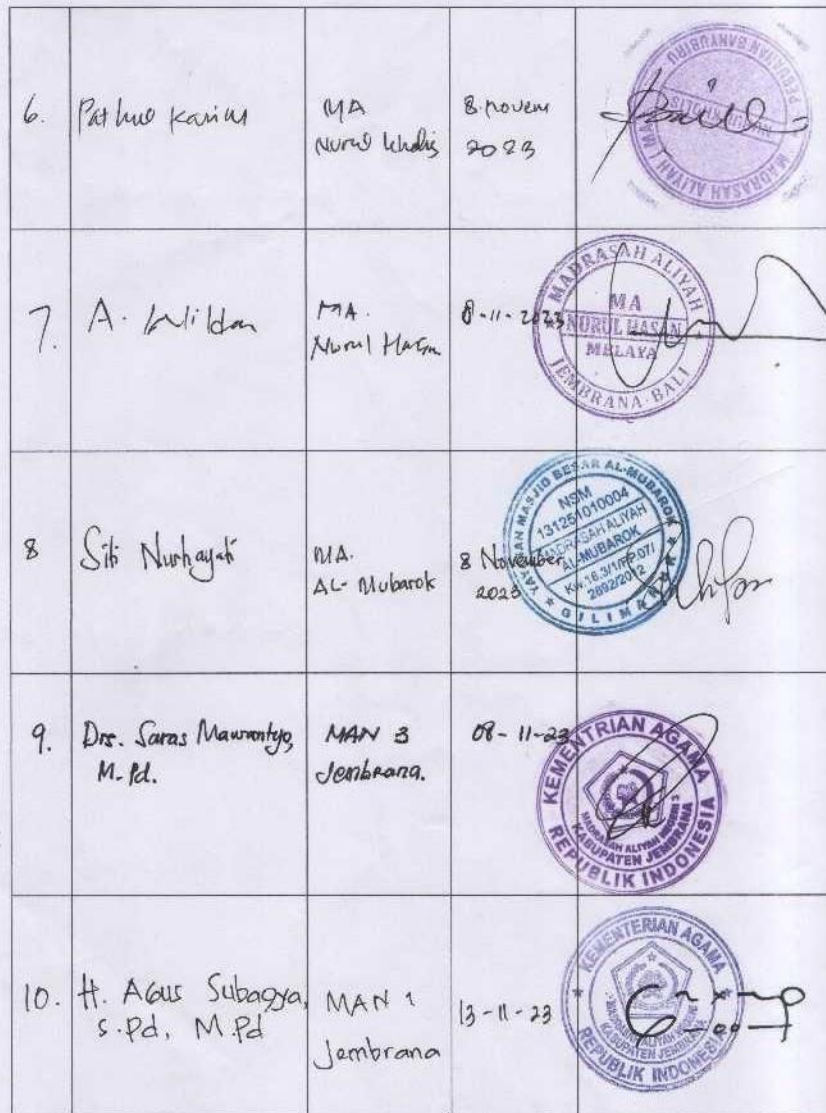 6.
Pathul Karim
MA
Nurul Kholis
8 novem
2023
MADRASAH ALIYAH ( MA
PEGUBUGAN BANYUBIRU
7.
A. Wildan
MA.
Nurul Hasan
8-11-2023
MADRASAH ALIYAH
MA
NURUL HASAN
MELAYA
JEMBRANA-BALI
8
Siti Nurhayati
MA.
AL-Mubarok
8 November
2023
YAYASAN MASJID BESAR AL-MUBAROK
NSM
131251010004
MADRASAH ALIYAH
AL-MUBAROK
2892/2012
GILIMANUK
9.
Drs. Saras
M.Pd.
MAN 3
Jembrana.
08-11-23
KEMENTRIAN AGAMA
MADRASAH ALIYAH NEGERI 3
KABUPATEN JEMBRANA
REPUBLIK INDONESIA
10.
H. Agus Subagya,
S.Pd, M.Pd
MAN 1
Jembrana
13-11-23
KEMENTERIAN AGAMA
KABUPATEN JEMBRANA
REPUBLIK INDONESIA